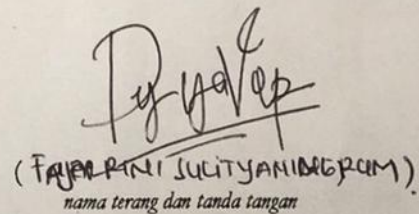 (FAJAR RINI SULITYANINGRUM)
nama terang dan tanda tangan